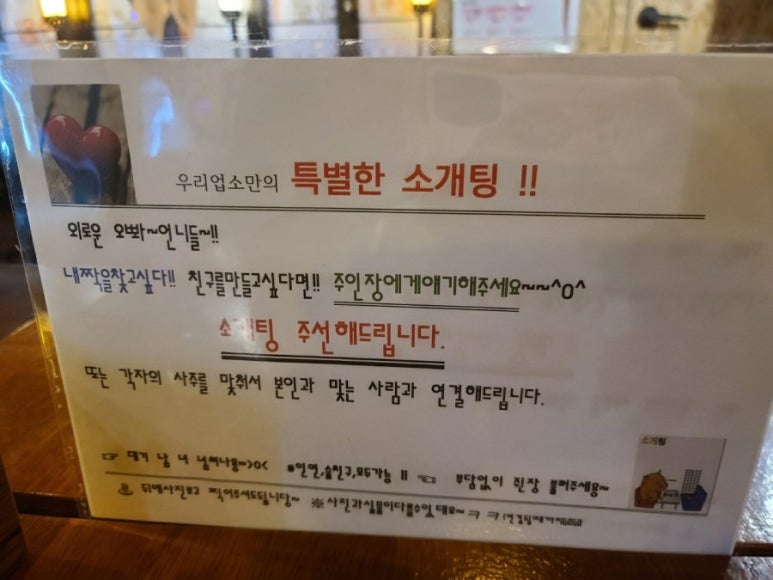 우리업소만의 특별한 소개팅 !!
외로운 오빠~언니들~!!
내짝을찾고싶다!! 친구를만들고싶다면!! 주인장에게얘기해주세요~~^0^
소개팅 주선해드립니다.
또는 각자의 사주를 맞춰서 본인과 맞는 사람과 연결해드립니다.
소개팅
☞ 대기 남 녀 넘쳐나용~>0< #인연,술친구,모두가능 !! ☜ 부담없이 쥔장 불러주세용~
♨ 뒤에사진보고 찍어주셔도됩니당~ ※사진과실물이다를수있대요~ㅋ ㅋ